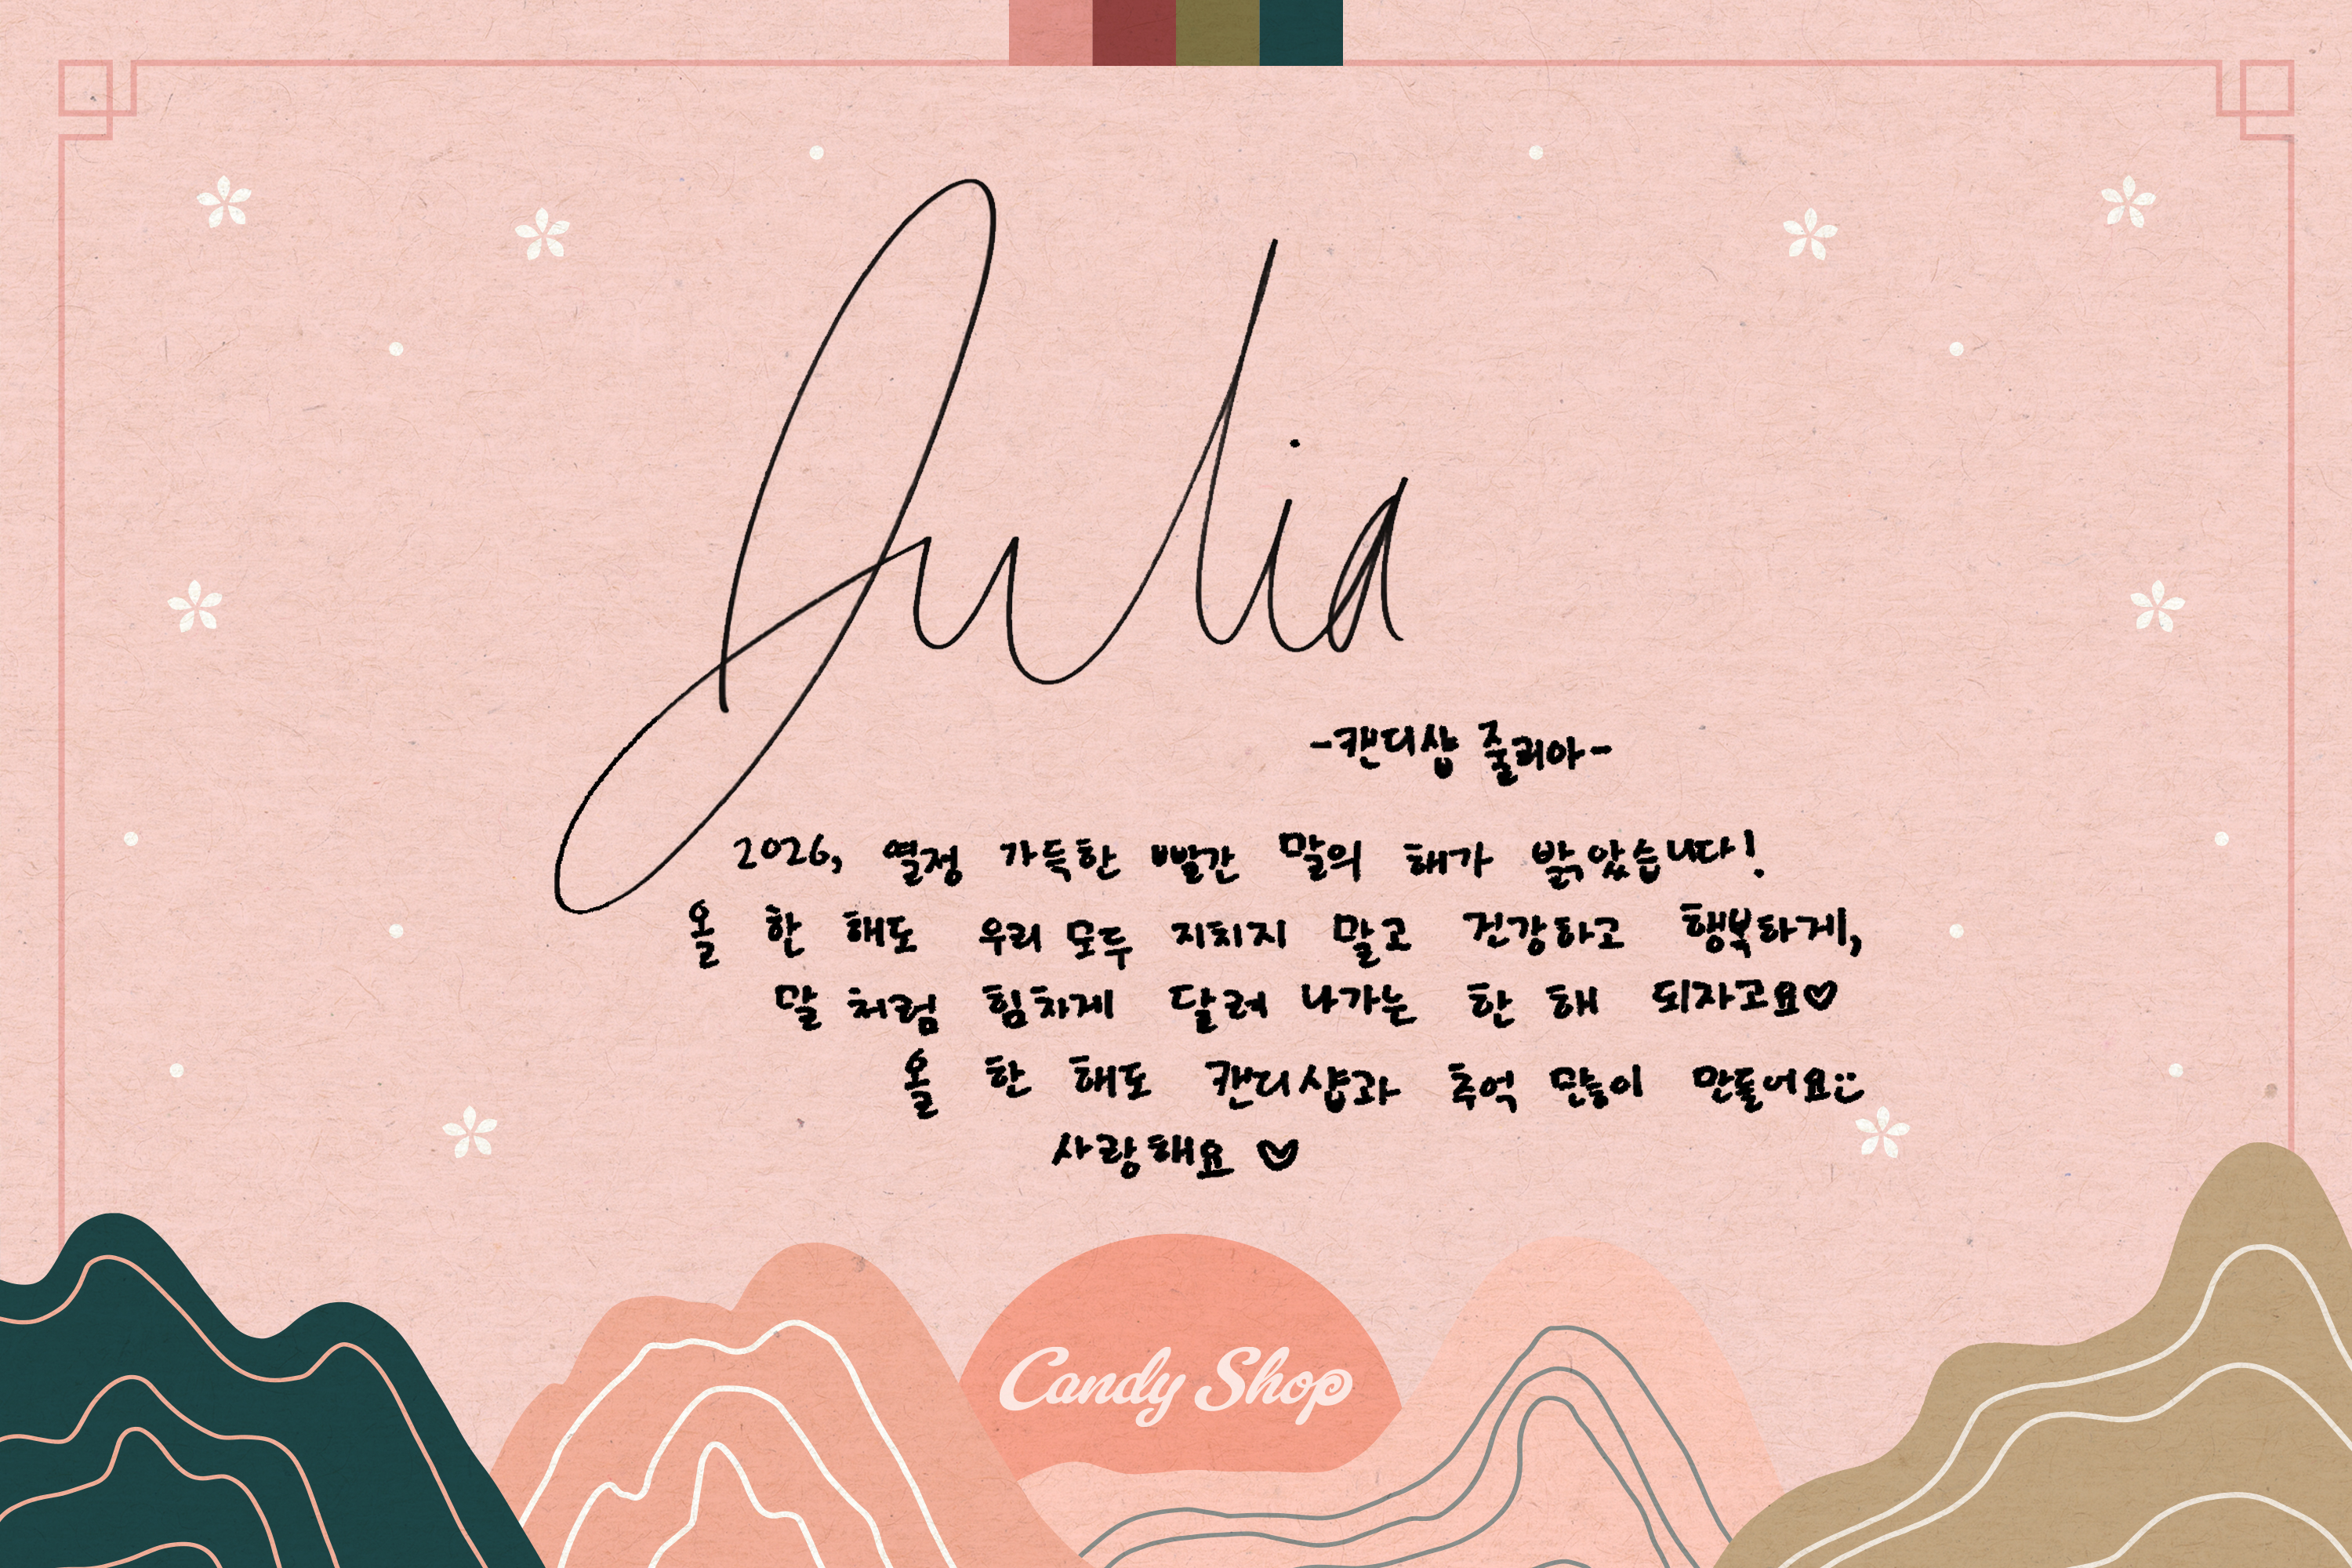 Julia
-캔디샵 줄리아-
2026, 열정 가득한 빨간 말의 해가 밝았습니다!
올 한 해도 우리 모두 지치지 말고 건강하고 행복하게,
말 처럼 힘차게 달려 나가는 한 해 되자고요♡
올 한 해도 캔디샵과 추억 많이 만들어요:)
사랑해요 ♡
Candy Shop